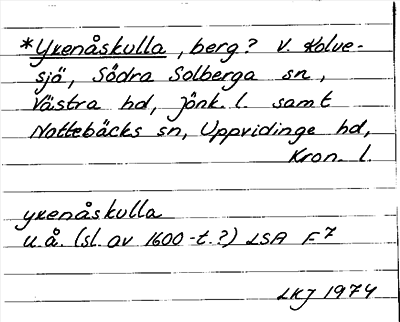 *Yxenåskulla, berg? v. Kolve-
sjö, Södra Solberga sn,
Västra hd, Jönk. l. samt
Nottebäcks sn, Uppvidinge hd,
Kron. l.
yxenåskulla
u.å. (sl. av 1600-t.?) LSA F7
LKJ 1974